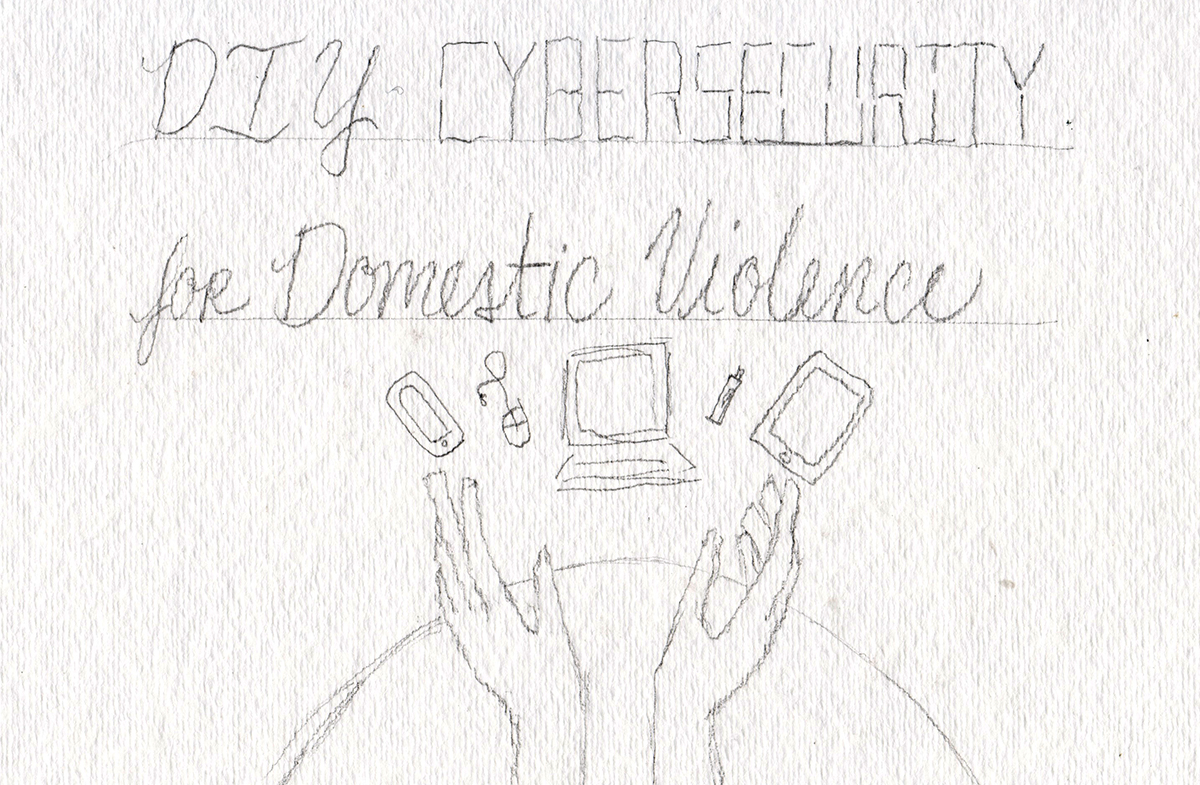 DIY CYBERSECURITY
for Domestic Violence